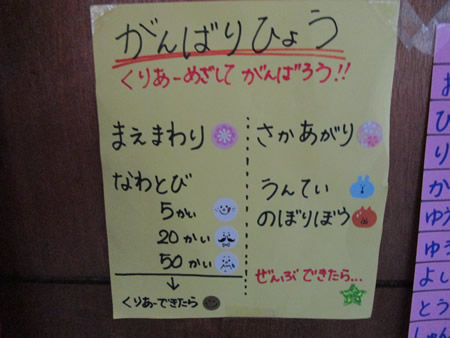 がんばりひょう
くりあーめざして がんばろう!!
まえまわり
なわとび
5かい
20かい
50かい
↓
くりあーできたら
さかあがり
うんてい
のぼりぼう
ぜんぶできたら...
お
ひ
り
か
ゆう
ゆう
よし
とう
しゅん